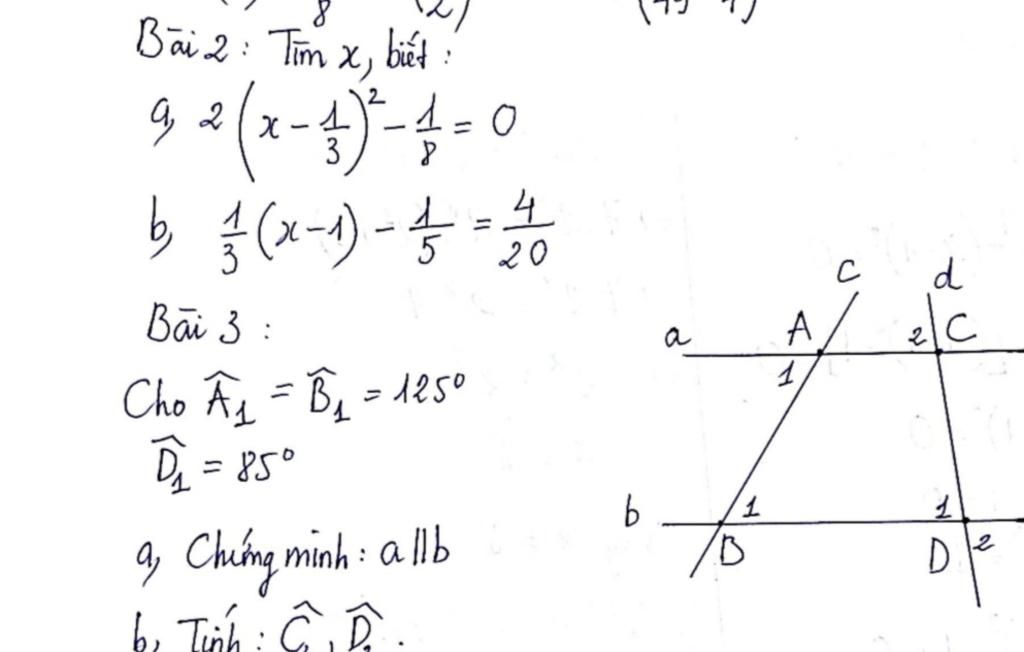 8 (2)
Bài 2: Tìm x, biết:
a, 2(x - 1/3)² - 1/8 = 0
b, 1/3(x-1) - 1/5 = 4/20
Bài 3:
Cho Â₁ = B̂₁ = 125°
D̂₁ = 85°
a, Chứng minh: a//b
b, Tính: Ĉ, D̂.
c d
a A 2 C
1
b 1 1
B D 2